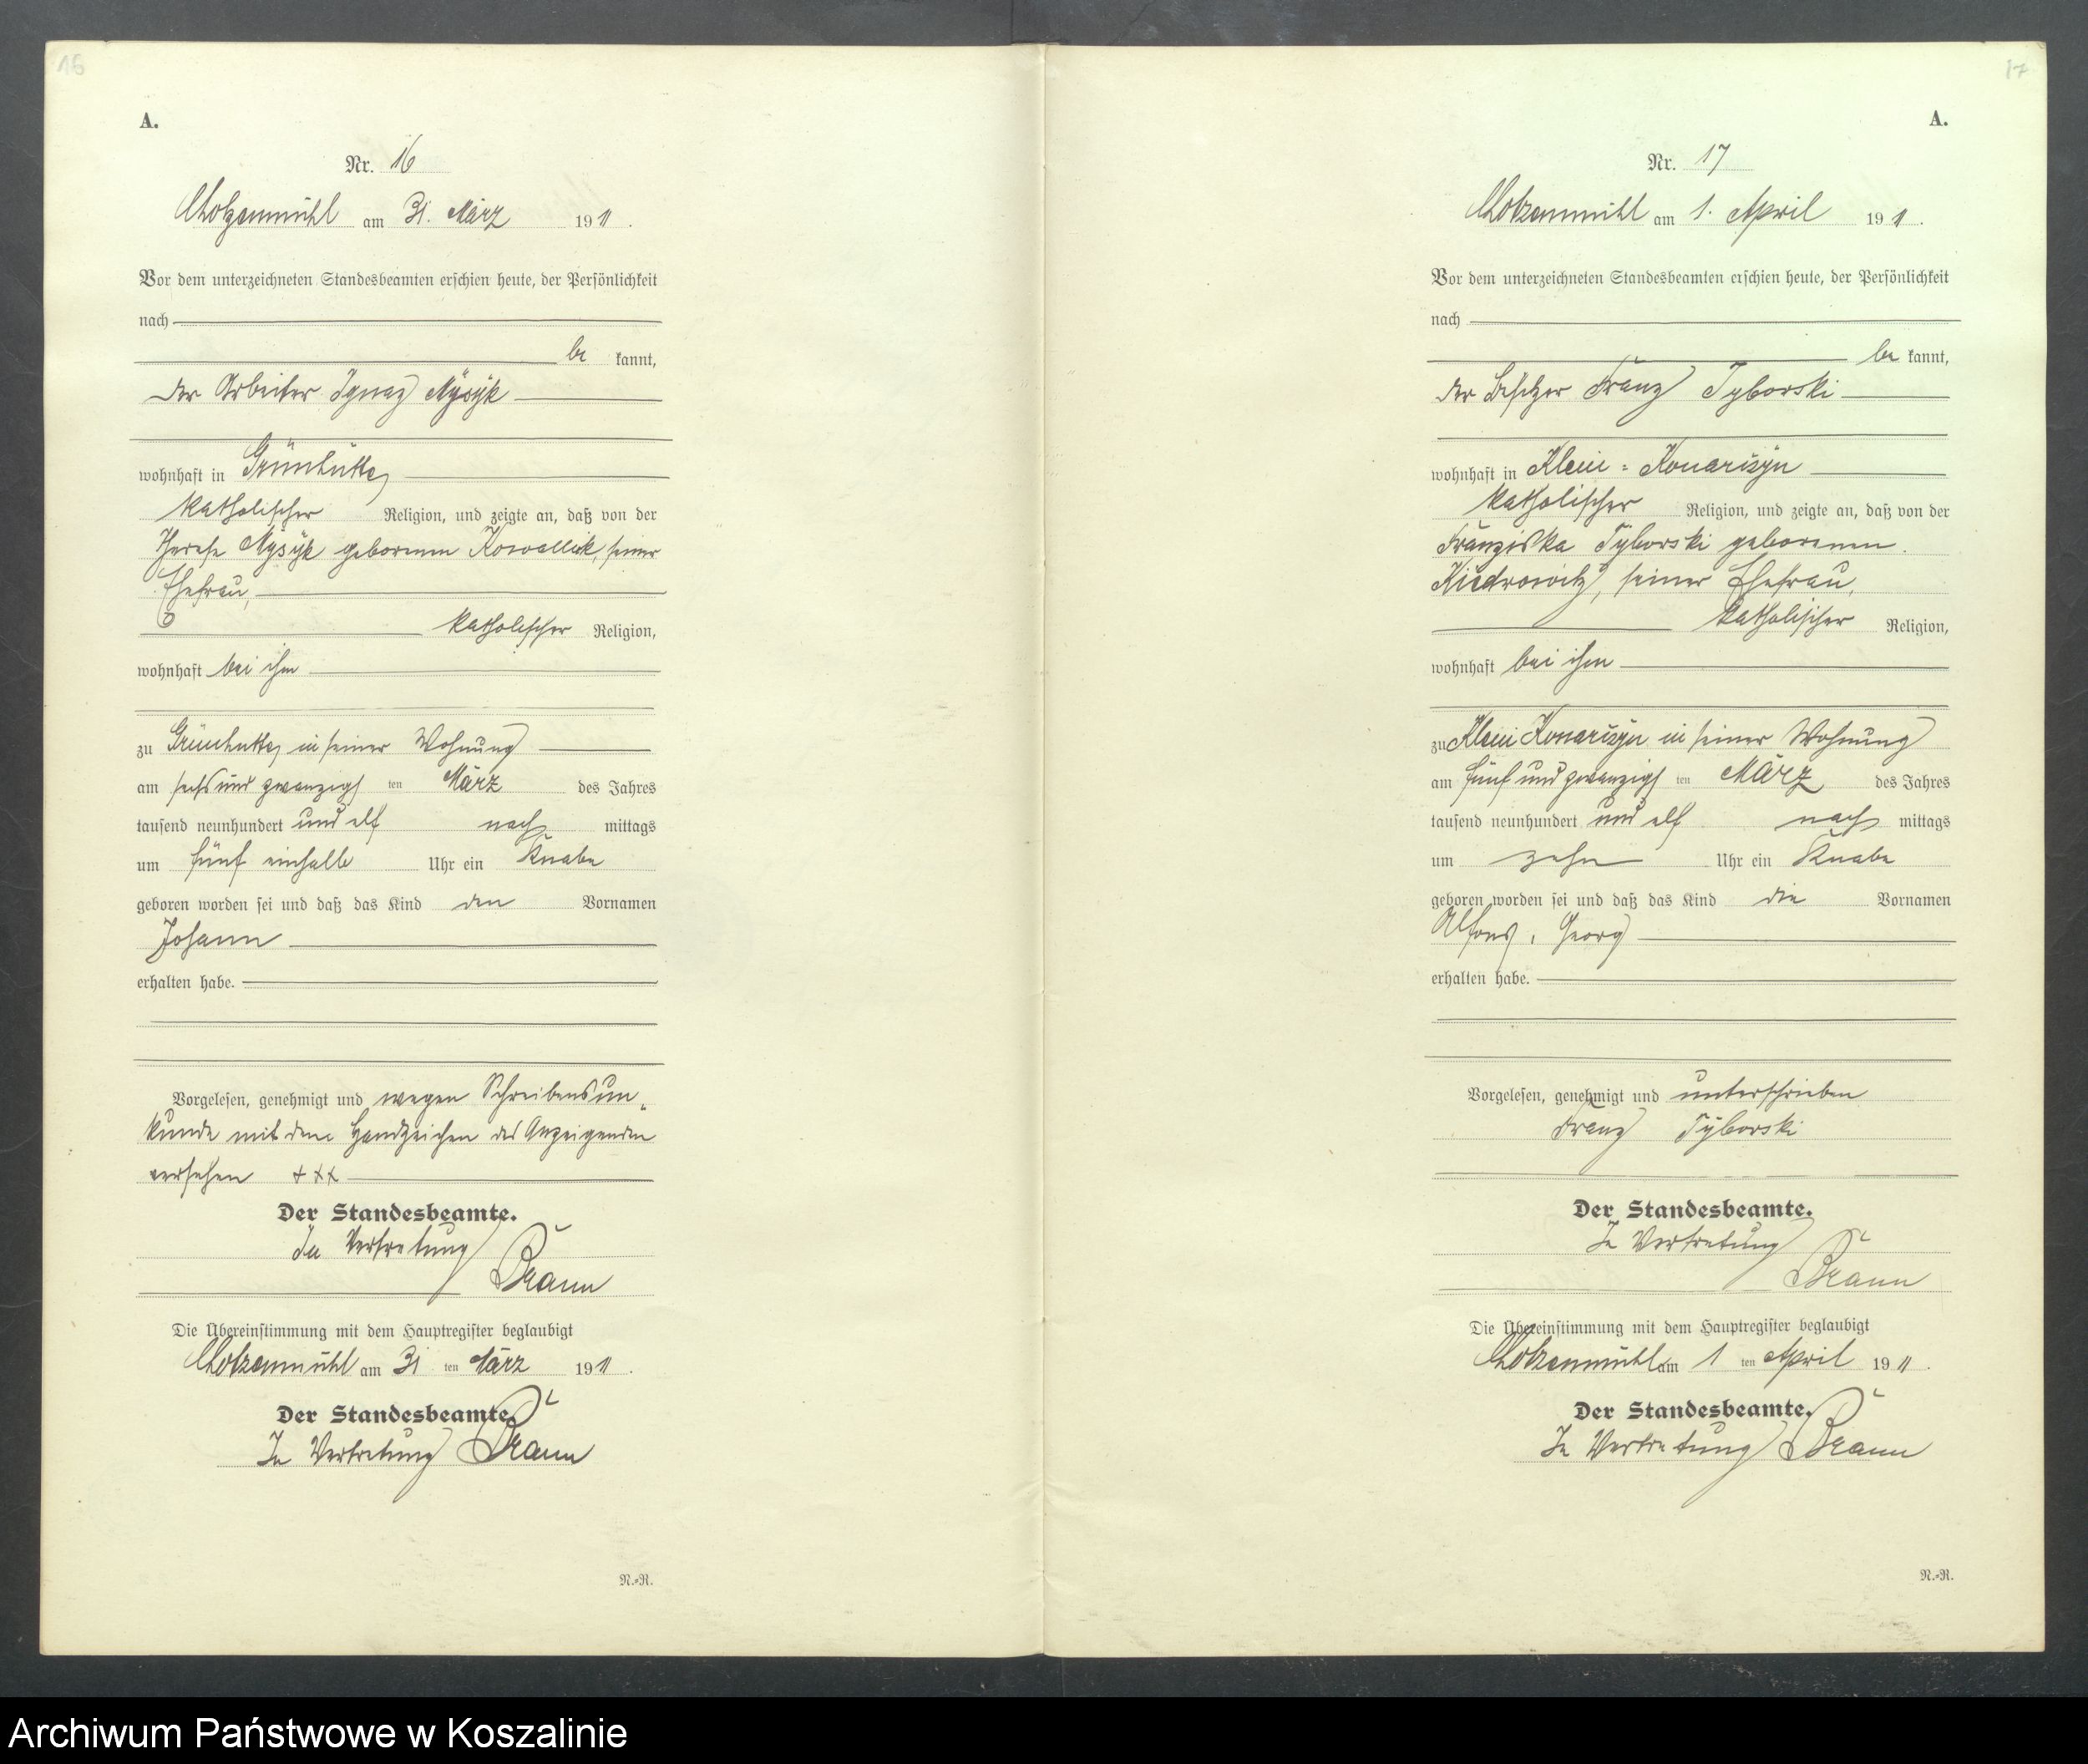 16
A.
Nr. 16
Chotzenmühl am 31. März 1911.
Vor dem unterzeichneten Standesbeamten erschien heute, der Persönlichkeit
nach
be kannt,
der Arbeiter Ignaz Mysyk
wohnhaft in Grünhütte,
katholischer Religion, und zeigte an, daß von der
Therese Mysyk geborenen Kowallek, seiner
Ehefrau,
katholischer Religion,
wohnhaft bei ihm
zu Grünhütte, in seiner Wohnung
am sechsundzwanzigsten März des Jahres
tausend neunhundert und elf nach mittags
um fünf einhalb Uhr ein Knabe
geboren worden sei und daß das Kind den Vornamen
Johann
erhalten habe.
Vorgelesen, genehmigt und wegen Schreibensun-
kunde mit dem Handzeichen des Anzeigenden
versehen +++
Der Standesbeamte.
In Vertretung
Braun
Die Übereinstimmung mit dem Hauptregister beglaubigt
Chotzenmühl am 31 ten März 1911.
Der Standesbeamte.
In Vertretung Braun
N.-R.
17
A.
Nr. 17
Chotzenmühl am 1. April 1911.
Vor dem unterzeichneten Standesbeamten erschien heute, der Persönlichkeit
nach
be kannt,
der Besitzer Franz Tyborski
wohnhaft in Klein-Konarszyn
katholischer Religion, und zeigte an, daß von der
Franziska Tyborski geborenen
Kiedrowitz, seiner Ehefrau,
katholischer Religion,
wohnhaft bei ihm
zu Klein Konarszyn in seiner Wohnung
am fünfundzwanzigsten März des Jahres
tausend neunhundert und elf nach mittags
um zehn Uhr ein Knabe
geboren worden sei und daß das Kind die Vornamen
Alfons, Georg
erhalten habe.
Vorgelesen, genehmigt und unterschrieben
Franz Tyborski
Der Standesbeamte.
In Vertretung
Braun
Die Übereinstimmung mit dem Hauptregister beglaubigt
Chotzenmühl am 1 ten April 1911.
Der Standesbeamte.
In Vertretung Braun
N.-R.
Archiwum Państwowe w Koszalinie